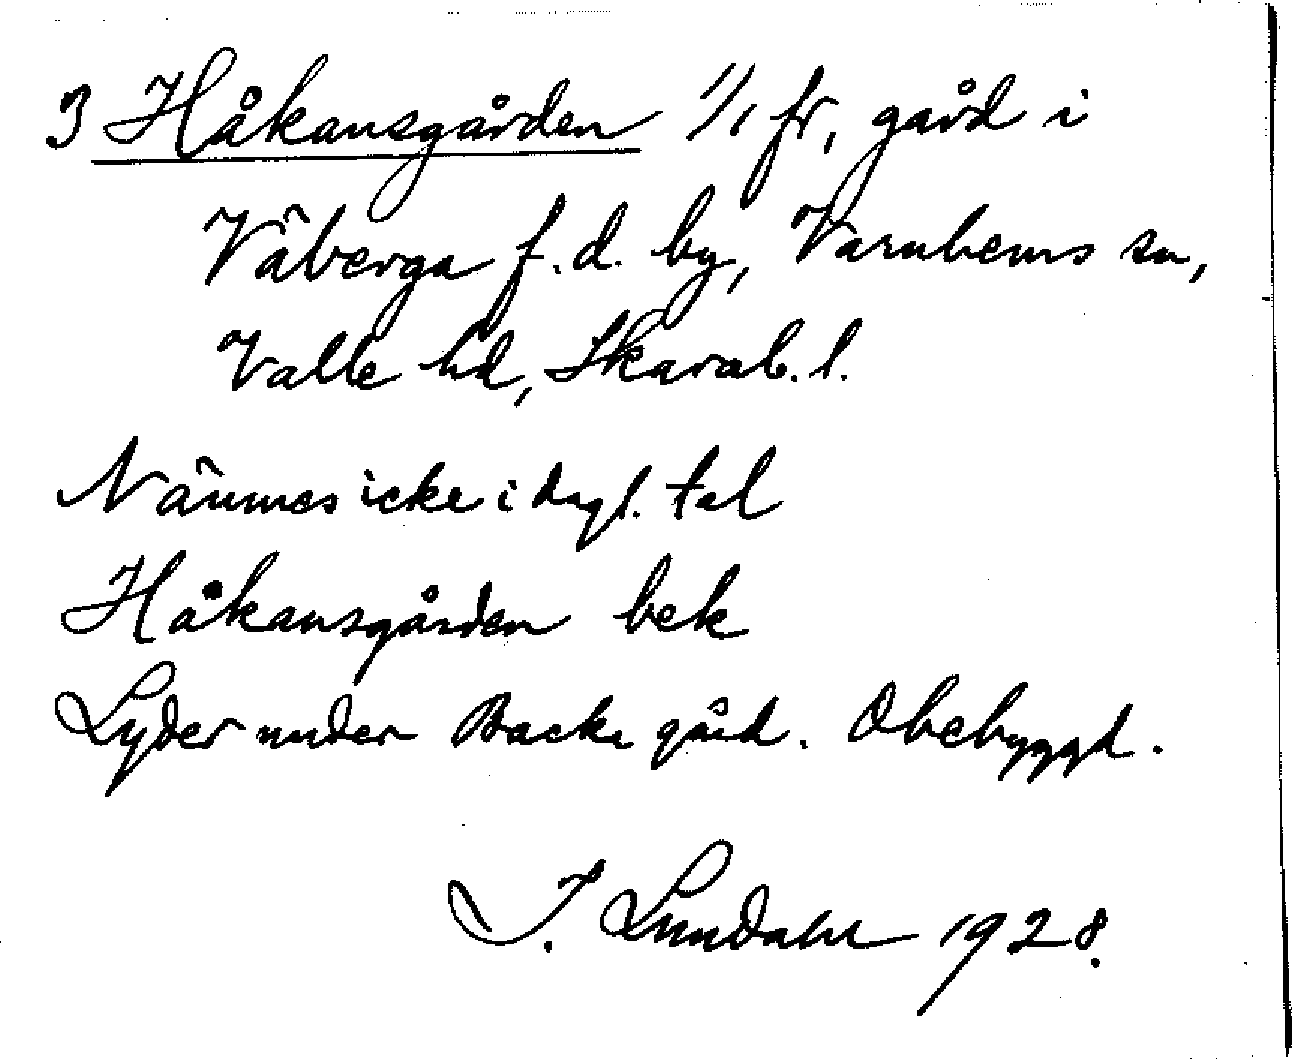 3 Håkansgården 1/1 fr, gård i
Våberga f.d. by, Varnhems sn,
Valle hd, Skarab. l.
Nämnes icke i dagl. tal
Håkansgården bek
Lyder under Backa gård. Obebyggd.
I. Lundahl 1928.